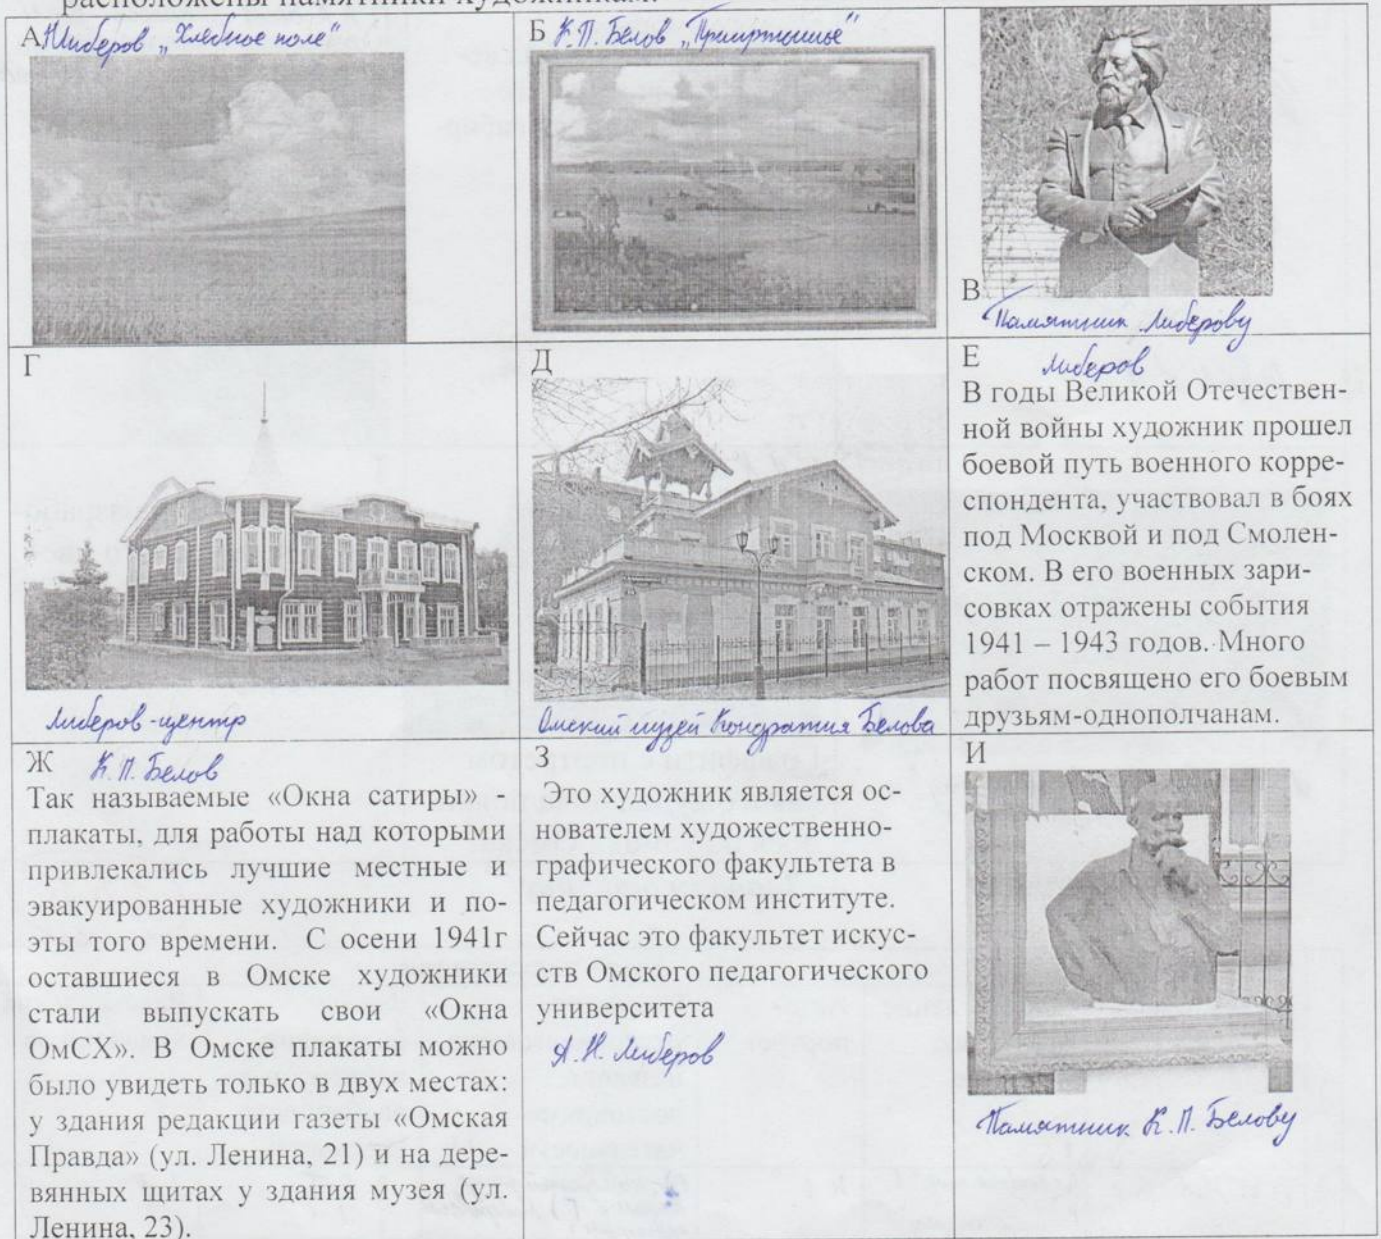 расположены памятники художникам.
А Н Либеров „Хлебное поле"
Б К.П. Белов „Прииртышье"
В
Памятник Либерову
Г
Либеров-центр
Д
Омский музей Кондратия Белова
Е Либеров
В годы Великой Отечествен-
ной войны художник прошел
боевой путь военного корре-
спондента, участвовал в боях
под Москвой и под Смолен-
ском. В его военных зари-
совках отражены события
1941 – 1943 годов. Много
работ посвящено его боевым
друзьям-однополчанам.
Ж К.П. Белов
Так называемые «Окна сатиры» -
плакаты, для работы над которыми
привлекались лучшие местные и
эвакуированные художники и по-
эты того времени. С осени 1941г
оставшиеся в Омске художники
стали выпускать свои «Окна
ОмСХ». В Омске плакаты можно
было увидеть только в двух местах:
у здания редакции газеты «Омская
Правда» (ул. Ленина, 21) и на дере-
вянных щитах у здания музея (ул.
Ленина, 23).
З
Это художник является ос-
нователем художественно-
графического факультета в
педагогическом институте.
Сейчас это факультет искус-
ств Омского педагогического
университета
А.Н. Либеров
И
Памятник К.П. Белову